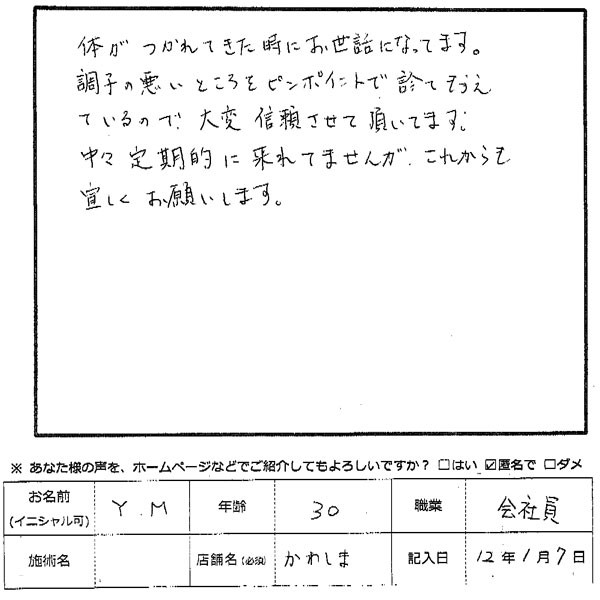 体がつかれてきた時にお世話になってます。
調子の悪いところをピンポイントで診てもらえ
ているので大変信頼させて頂いてます。
中々定期的に来れてませんが、これからも
宜しくお願いします。
※ あなた様の声を、ホームページなどでご紹介してもよろしいですか？ □はい ☑匿名で □ダメ
お名前 (イニシャル可) Y.M 年齢 30 職業 会社員
施術名 店舗名(必須) かわしま 記入日 12年1月7日